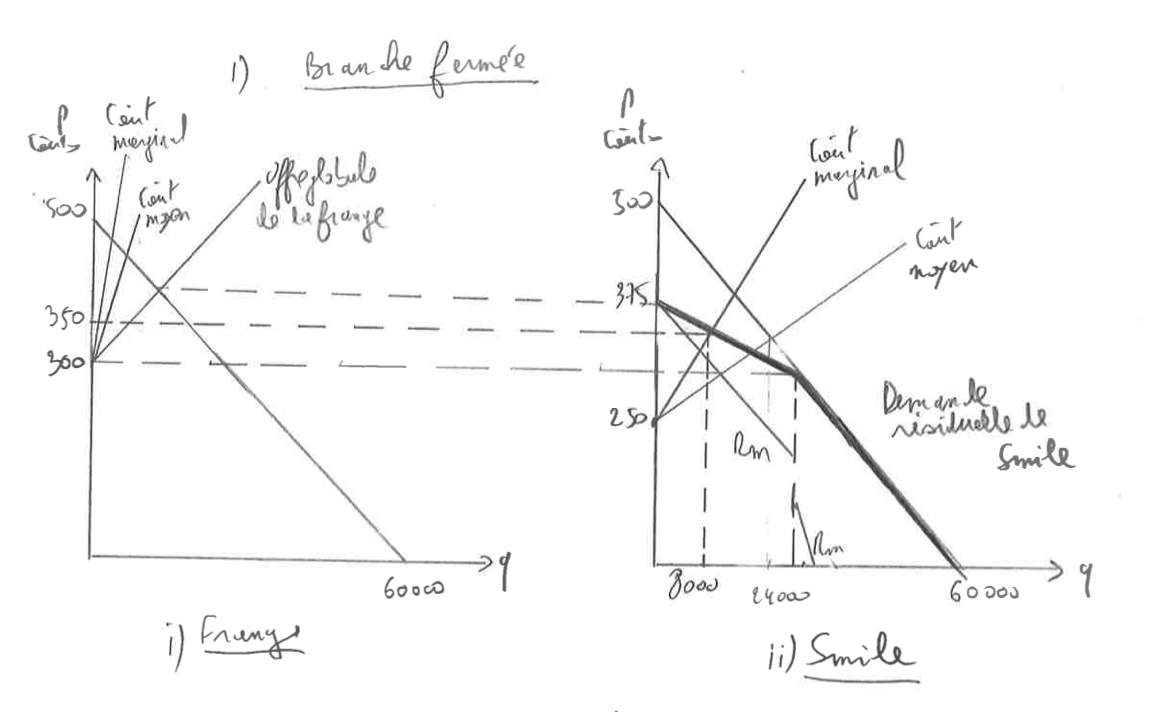 1) Branche fermée
P
Coûts
Coût
marginal
Coût
moyen
offre globale
de la frange
500
350
300
60000
q
i) Frange
P
Coûts
Coût
marginal
Coût
moyen
500
375
250
Rm
Rm
Demande
résiduelle de
Smile
8000
24000
60000
q
ii) Smile